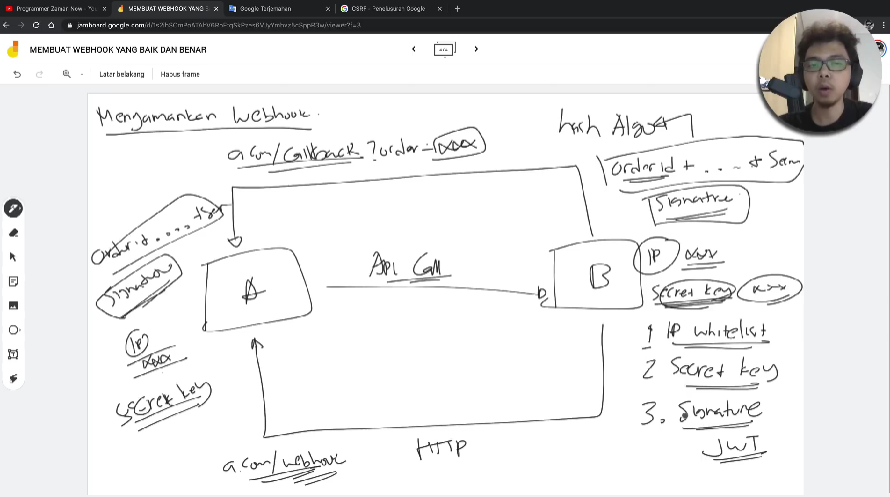 Programmer Zaman Now - You
MEMBUAT WEBHOOK YANG BAIK DAN
Google Terjemahan
CSRF - Penelusuran Google
MEMBUAT WEBHOOK YANG BAIK DAN BENAR
Latar belakang
Hapus frame
Mengamankan Webhook
a.com/callback ?order=xxx
hash
Order id + .... +
Signature
Order id
Signature
A
API Call
B
IP xxx
Secret key xxx
IP
xxx
Secret key
1 IP whitelist
2 Secret key
3. Signature
JWT
HTTP
a.com/webhook